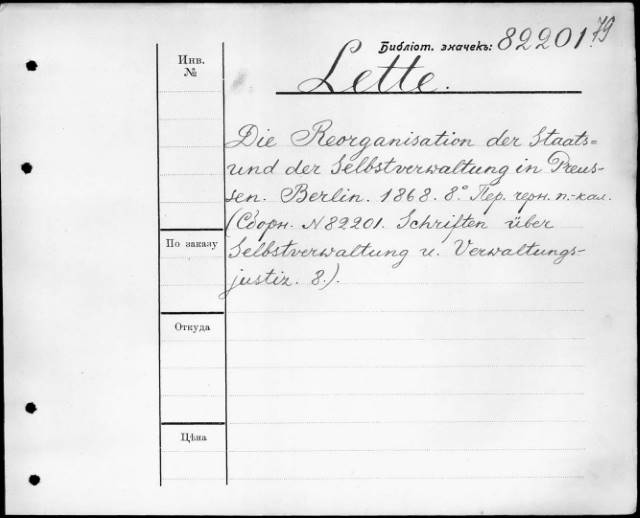 Библіот. значекъ: 82201.79
Инв.
№
Lette.
Die Reorganisation der Staats=
und der Selbstverwaltung in Preus-
sen. Berlin. 1868. 8° Пер. черн. п.-кал.
(Сборн. № 82201. Schriften über
Selbstverwaltung u. Verwaltungs-
justiz. 8.).
По заказу
Откуда
Цѣна